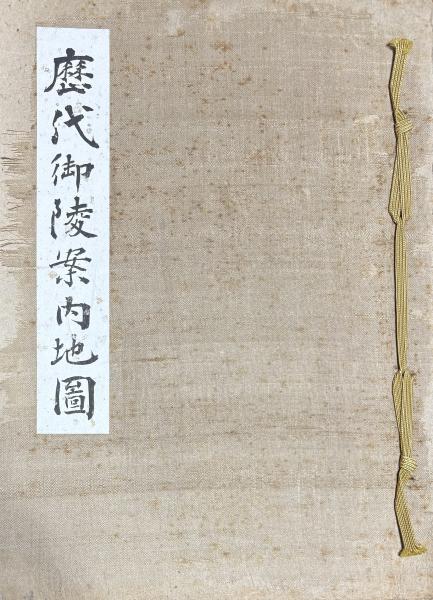 歷代御陵案内地圖